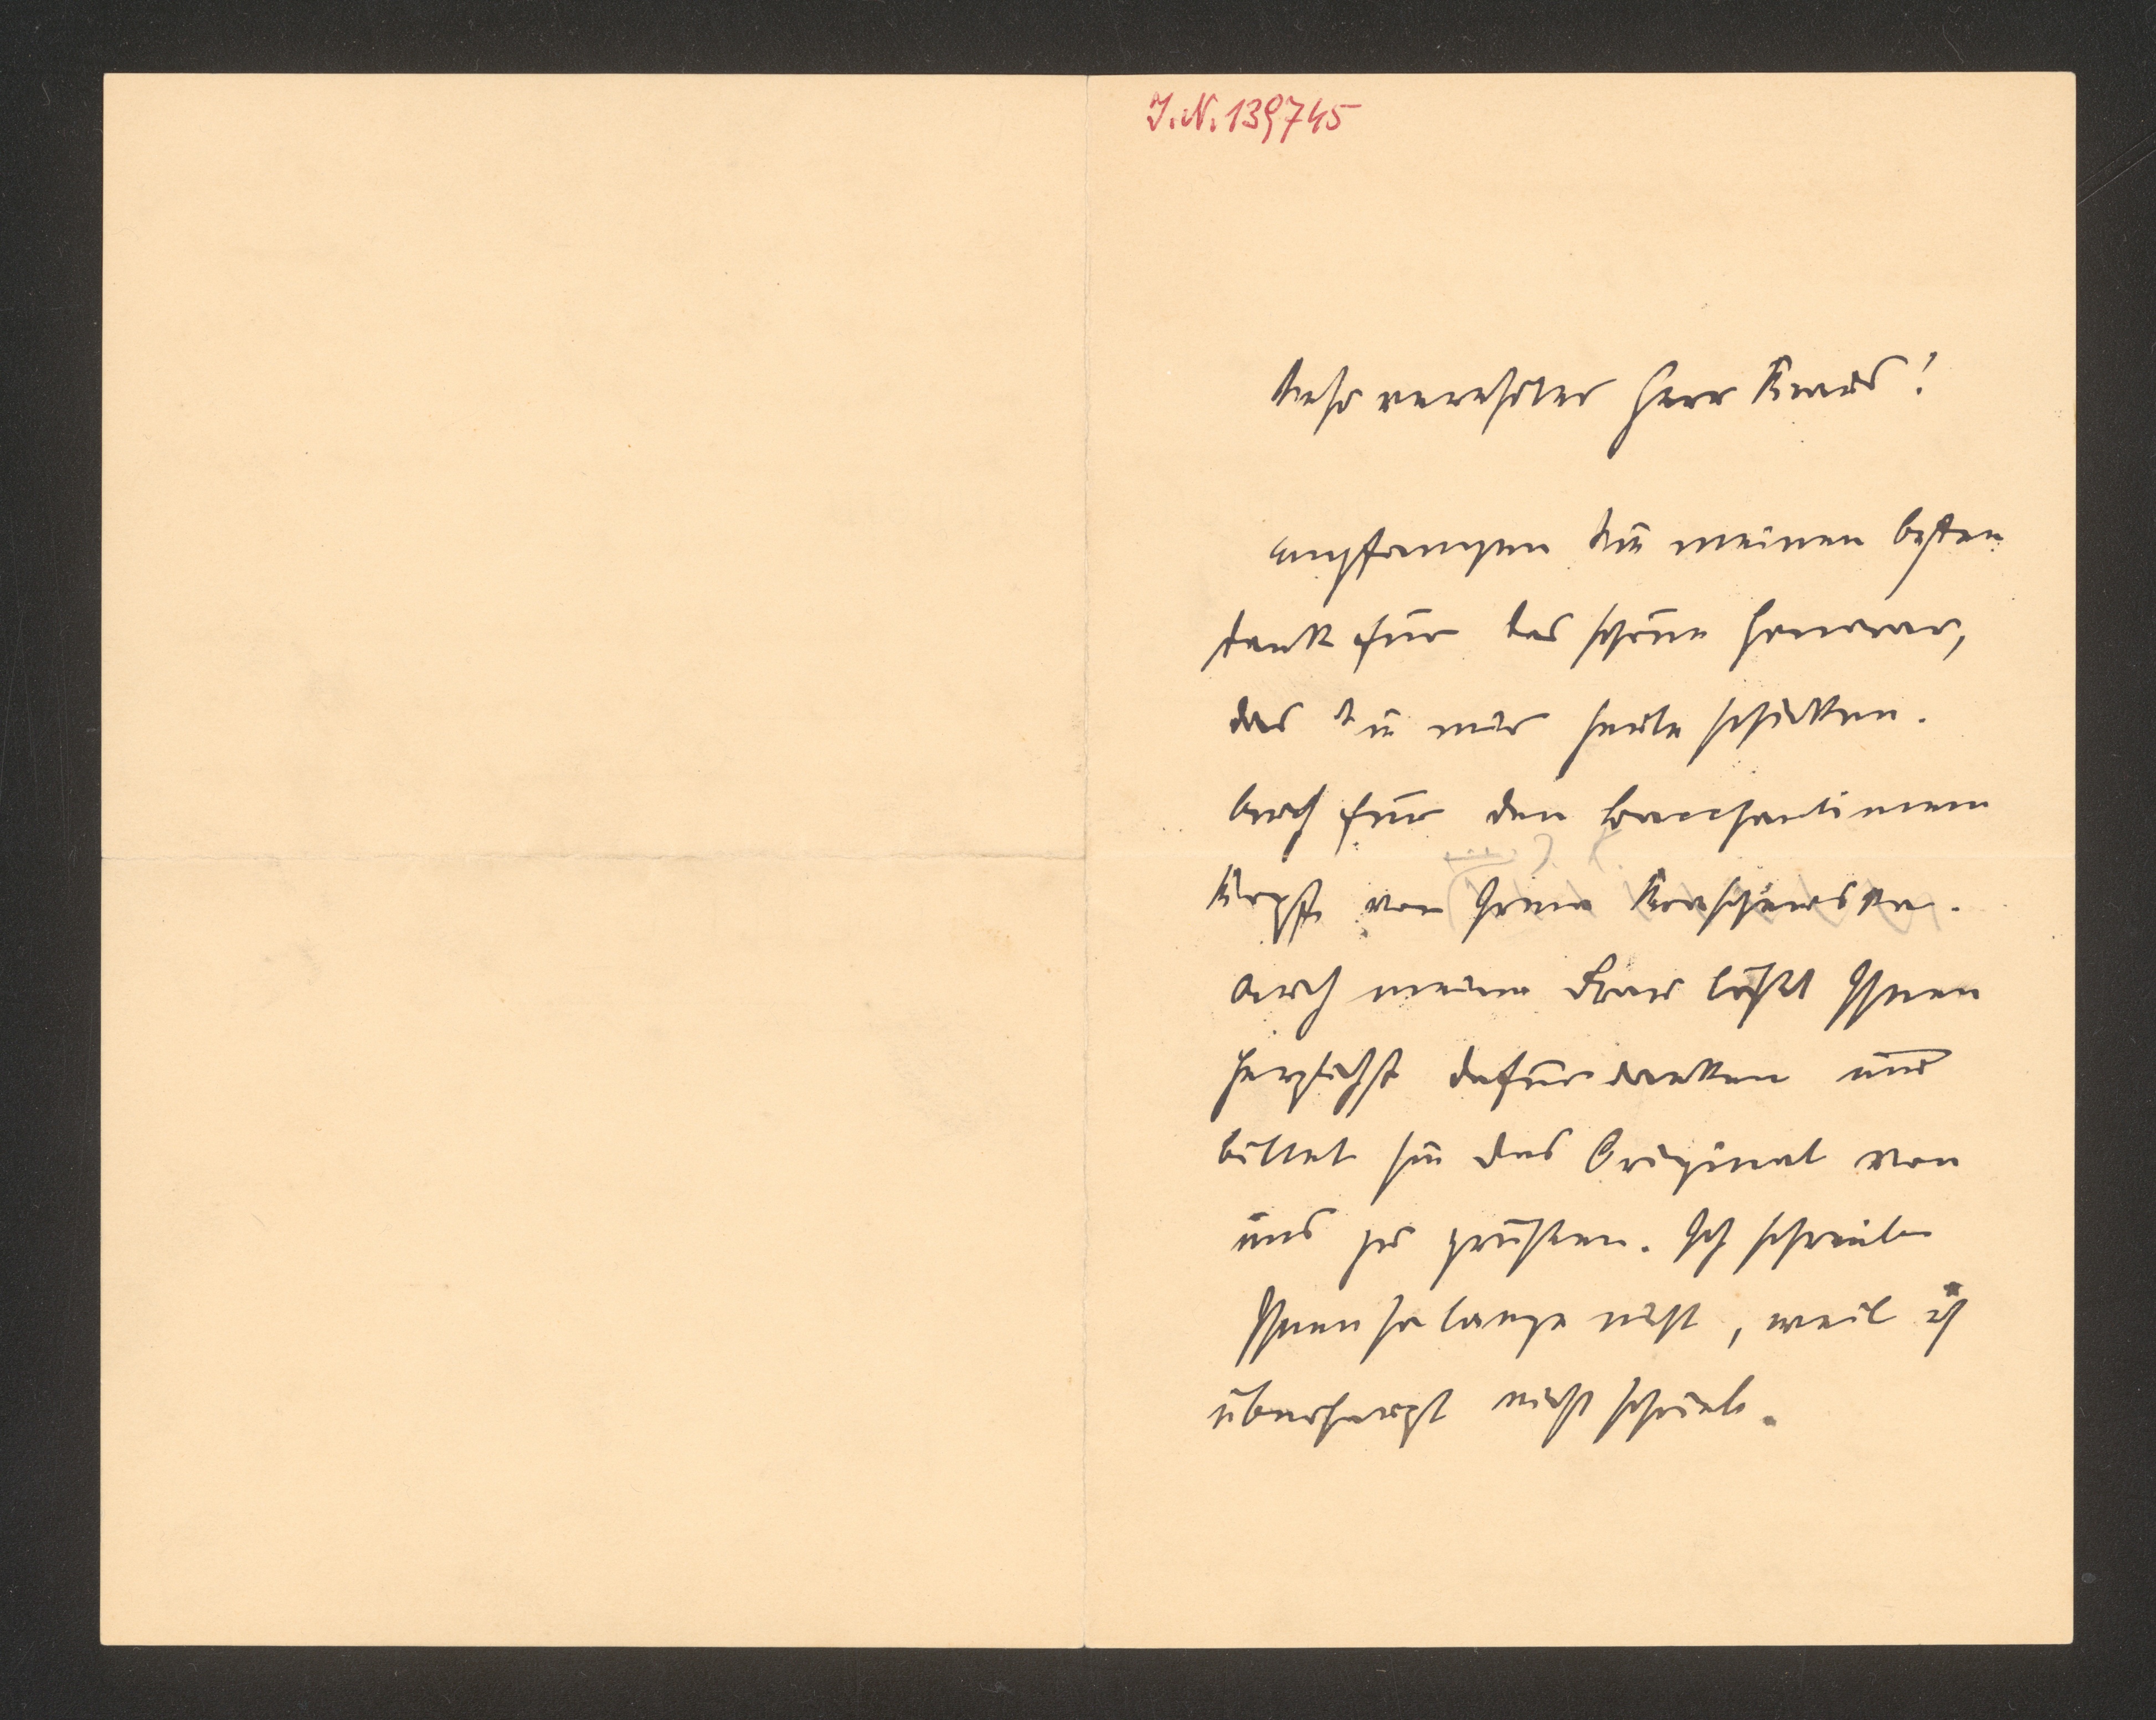 J.N. 139745
Sehr verehrter Herr Kraus!
empfangen Sie meinen besten
Dank für das schöne Honorar,
das Sie mir heute schickten.
Auch für den bacchantinnen
Kopf von Irma Karczewska.
Auch meine Frau läßt Ihnen
herzlichst dafür danken und
bittet sie das Original von
uns zu grüßen. Ich schreibe
Ihnen so lange nicht, weil ich
überhaupt nicht schreibe.